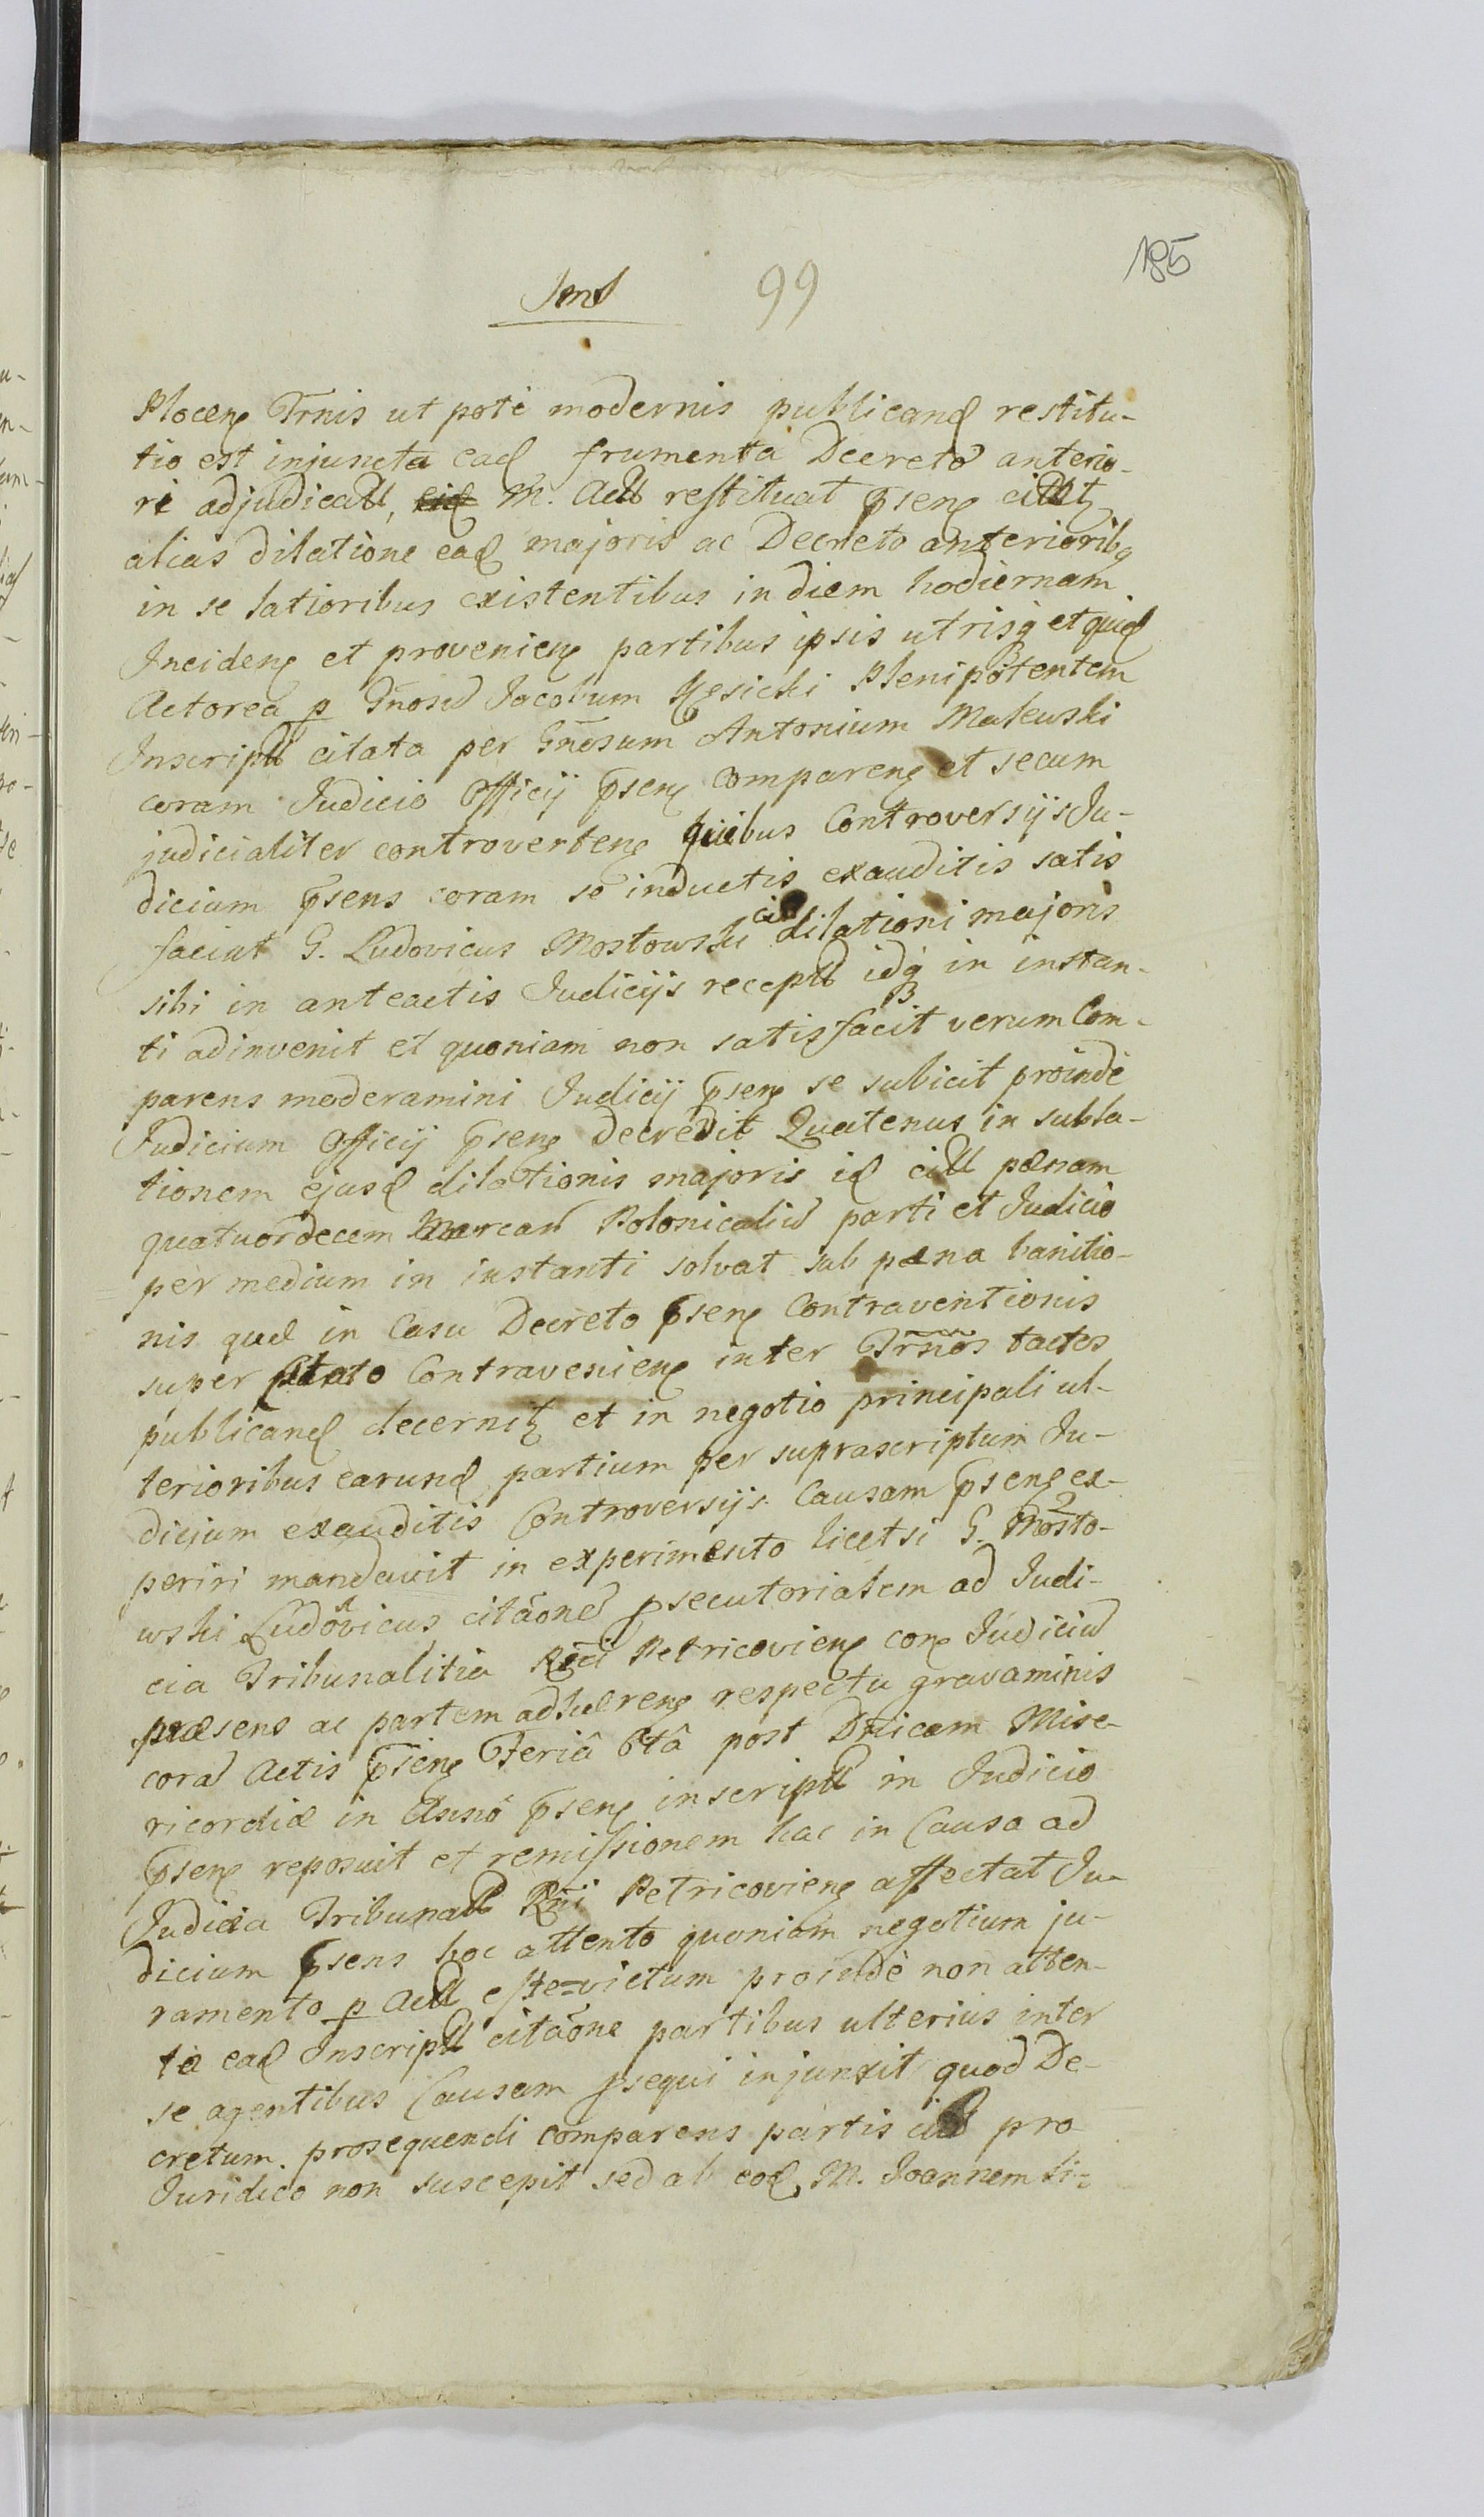 185
99
Plocen Trnis ut potè modernis publicand restitu-
tio est injuncta ead frumenta Decreto anterio-
ri adjudicatt, M. Actt restituat p̄sen
alias dilatione ead majoris ac Decreto anterioribq
in se latioribus existentibus in diem hodiernam
Inciden et provenien partibus ipsis utrisq et quid
Actorea p Gnosū Jacobum Plenipotentem
Inscriptt citata per Gnosum Antonium Makewski
coram Judicio Officij p̄sen comparen et secum
judicialiter controverten quibus Controversijs Ju-
dicium p̄sens coram se inductis exauditis satis
faciat G. Ludovicus Mostowski citt dilationi majoris
sibi in anteactis Judicijs receptt idq in instan-
ti adinvenit et quoniam non satisfacit verum Com-
parens moderamini Judicij p̄sen se subicit proinde
Judicium Officij p̄sen decredit Quatenus in subla-
tionem ejusd dilationis majoris id citt pœnam
quatuordecem Marcarū Polonicaliū parti et Judicio
per medium in instanti solvat sub pœna banitio-
nis quæ in Casu Decreto p̄sen Contraventionis
super Contravenien inter Trn̄os tactos
publicand decernit et in negotio principali ul-
terioribus earund partium per suprascriptum Ju-
dicium exauditis Controversijs Causam p̄sen ex-
periri mandavit in experimento licet si G. Mosto-
wski Ludovicus citāonē psecutorialem ad Judi-
cia Tribunalitia Petricovien con Judiciū
præsens ac partem adhæren respectu gravaminis
corā Actis p̄sen Feriâ 6tâ post Dn̄icam Mise-
ricordiæ in Anno p̄sen inscriptt in Judicio
p̄sen reposuit et remissionem hac in Causa ad
Judicia Tribunatt Petricovien affectat Ju-
dicium p̄sens hoc attento quoniam negotium ju-
ramento p Actt este=victum proindè non atten-
ta ead Inscriptt citāone partibus ulterius inter
se agentibus Causam psequi injunxit quod De-
cretum. prosequendi comparens partis citt pro
Juridico non suscepit sed ab eod M. Joannem Li=